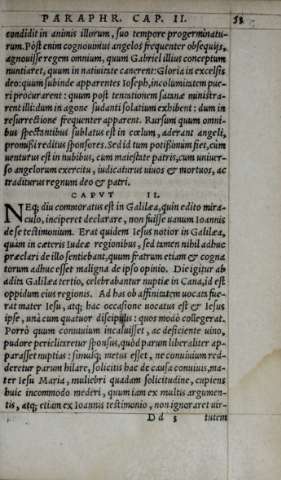 PARAPHR. CAP. II.
condidit in animis illorum, suo tempore progerminatu-
rum. Pòst enim cognouimus angelos frequenter obsequijs,
agnouisse regem omnium, quum Gabriel illius conceptum
nuntiaret, quum in natiuitate canerent: Gloria in excelsis
deo: quum subinde apparentes Ioseph, incolumitatem pue-
ri procurarent: quum post tentationem satanæ ministra-
rent illi: dum in agone sudanti solatium exhibent: dum in
resurrectione frequenter apparent. Rursum quum omni-
bus spectantibus sublatus est in cœlum, aderant angeli,
promissi reditus sponsores. Sed id tum potissimum fiet, cùm
uenturus est in nubibus, cum maiestate patris, cum uniuer-
so angelorum exercitu, iudicaturus uiuos & mortuos, ac
traditurus regnum deo & patri.
CAPVT II.
NEq; diu commoratus est in Galilæa, quin edito mira-
culo, inciperet declarare, non fuisse uanum Ioannis
de se testimonium. Erat quidem Iesus notior in Galilæa,
quàm in cæteris Iudeæ regionibus, sed tamen nihil adhuc
præclari de illo sentiebant, quum fratrum etiam & cogna
torum adhuc esset maligna de ipso opinio. Die igitur ab
adita Galilæa tertio, celebrabantur nuptiæ in Cana, id est
oppidum eius regionis. Ad has ob affinitatem uocata fue-
rat mater Iesu, atq; hac occasione uocatus est & Iesus
ipse, unà cum quatuor discipulis: quos modò collegerat.
Porrò quum conuiuium incaluisset, ac deficiente uino,
pudore periclitaretur sponsus, quòd parum liberaliter ap-
parasset nuptias: simulq; metus esset, ne conuiuium red-
deretur parum hilare, solicitis hac de causa conuiuis, ma-
ter Iesu Maria, muliebri quadam solicitudine, cupiens
huic incommodo mederi, quum iam ex multis argumen-
tis, atq; etiam ex Ioannis testimonio, non ignoraret uir-
Dd 3 tutem